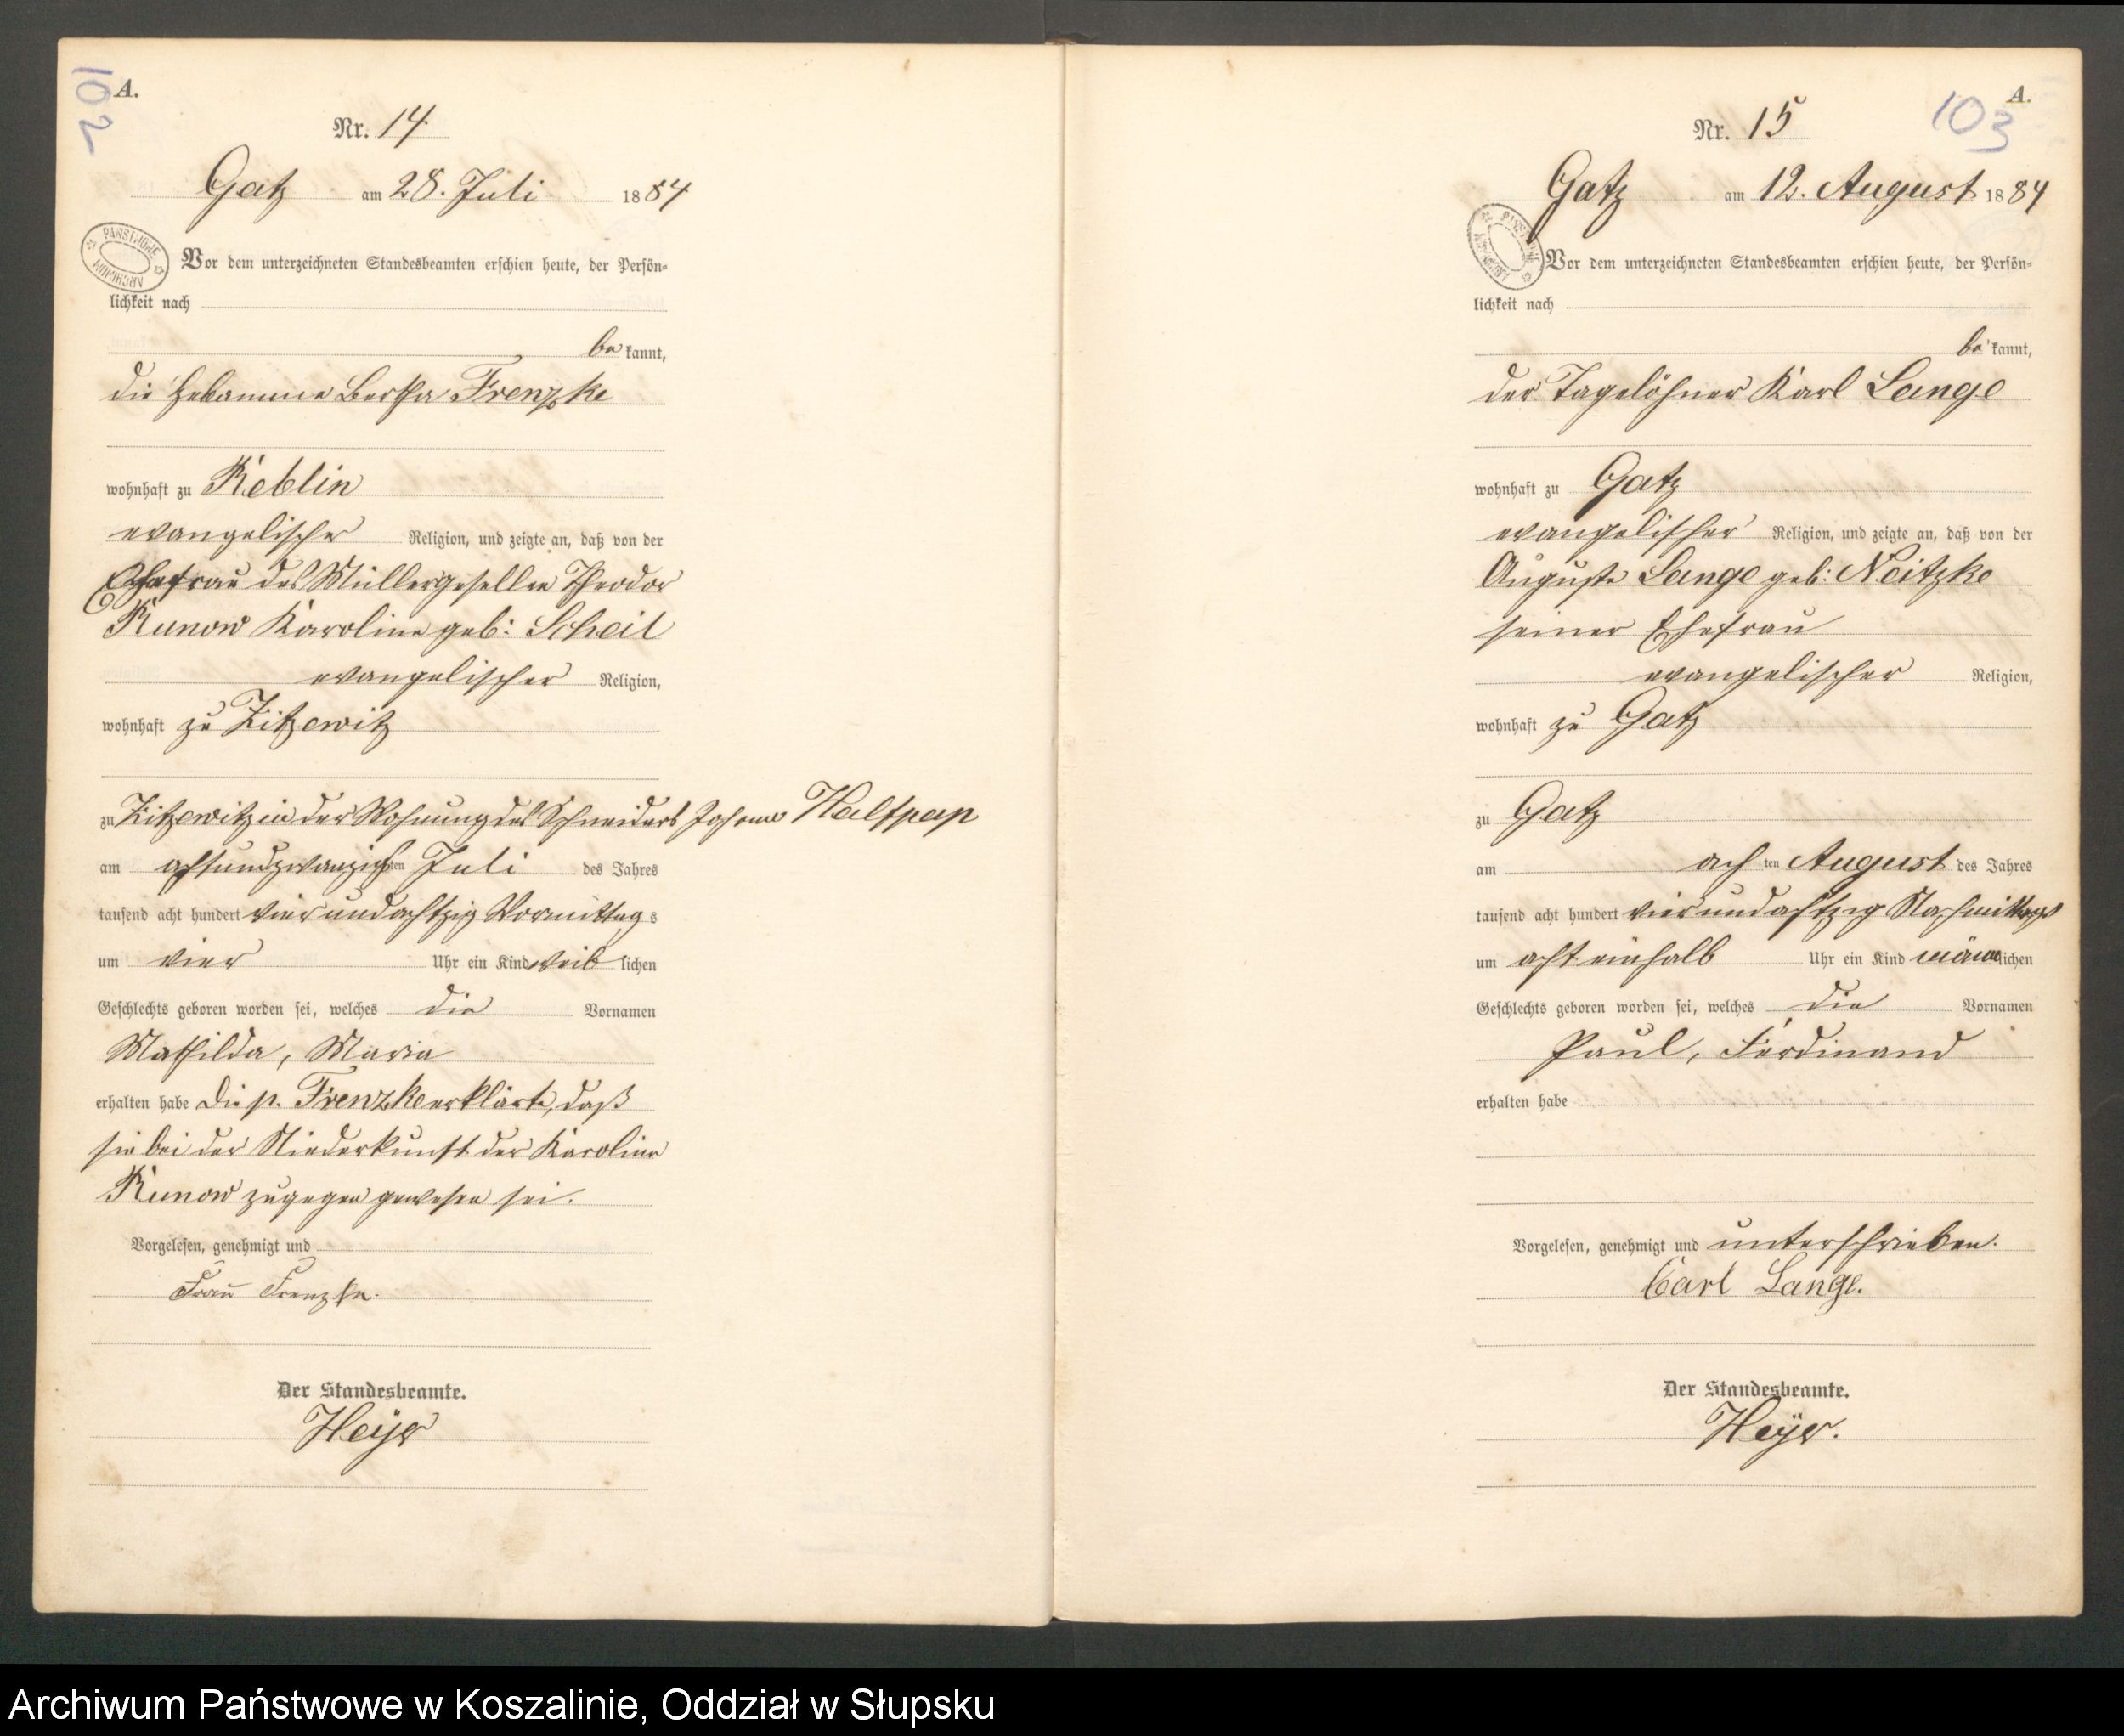 102
A.
Nr. 14
Gatz am 28. Juli 1884
PAŃSTWOWE ARCHIWUM
Vor dem unterzeichneten Standesbeamten erschien heute, der Persön-
lichkeit nach
be kannt,
die Hebamme Bertha Frenzke
wohnhaft zu Reblin
evangelischer Religion, und zeigte an, daß von der
Ehefrau des Müllergesellen Theodor
Kunow Karoline geb: Scheil
evangelischer Religion,
wohnhaft zu Zitzewitz
zu Zitzewitz in der Wohnung des Schneiders Johann Halfpap
am achtundzwanzigsten Juli des Jahres
tausend acht hundert vierundachtzig Vormittag s
um vier Uhr ein Kind weib lichen
Geschlechts geboren worden sei, welches die Vornamen
Mathilda, Maria
erhalten habe Die p. Frenzke erklärte, daß
sie bei der Niederkunft der Karoline
Kunow zugegen gewesen sei.
Vorgelesen, genehmigt und
Frau Frenzke.
Der Standesbeamte.
Heyer
103
A.
Nr. 15
Gatz am 12. August 1884
Vor dem unterzeichneten Standesbeamten erschien heute, der Persön-
lichkeit nach
be kannt,
der Tagelöhner Karl Lange
wohnhaft zu Gatz
evangelischer Religion, und zeigte an, daß von der
Auguste Lange geb: Neitzke
seiner Ehefrau
evangelischer Religion,
wohnhaft zu Gatz
zu Gatz
am ach ten August des Jahres
tausend acht hundert vierundachtzig Nachmittags
um acht einhalb Uhr ein Kind männlichen
Geschlechts geboren worden sei, welches die Vornamen
Paul, Ferdinand
erhalten habe
Vorgelesen, genehmigt und unterschrieben.
Carl Lange.
Der Standesbeamte.
Heyer.
Archiwum Państwowe w Koszalinie, Oddział w Słupsku